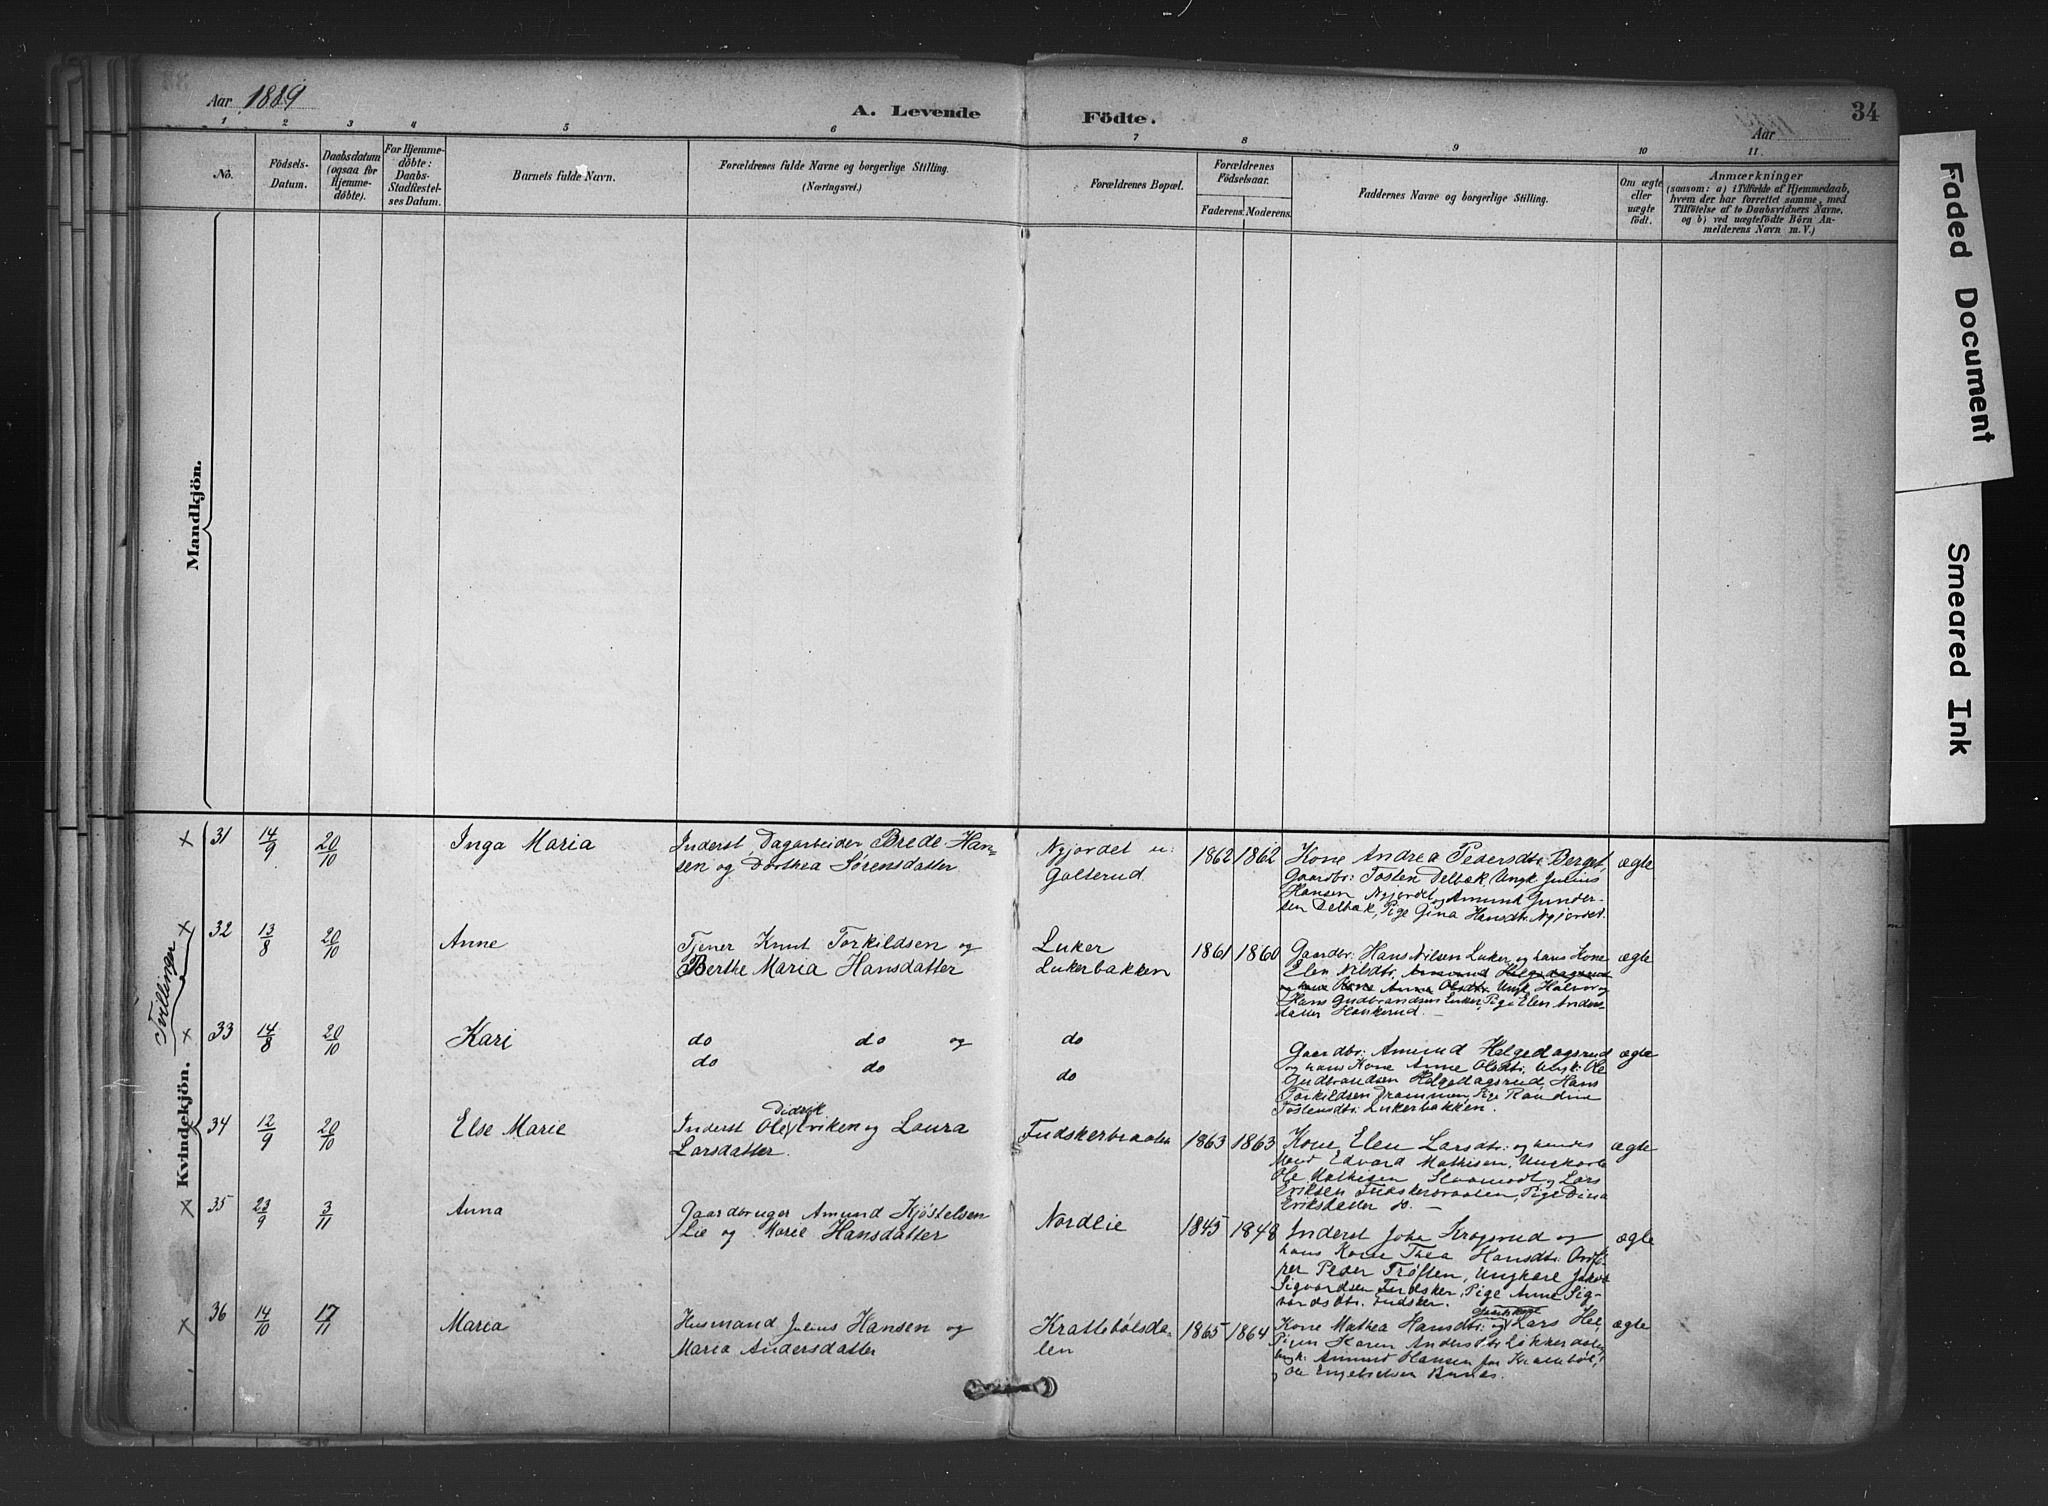 Aar 1889
A. Levende Födte.
Aar
34
1 2 3 4 5 6 7 8 9 10 11.
No.
Födsels-Datum.
Daabsdatum (ogsaa for Hjemmedöbte).
For Hjemmedöbte: Daabs-Stadfæstelses Datum.
Barnets fulde Navn.
Forældrenes fulde Navne og borgerlige Stilling. (Næringsvei.)
Forældrenes Bopæl.
Forældrenes Födselsaar.
Faderens. Moderens.
Faddernes Navne og borgerlige Stilling.
Om ægte eller uægte födt.
Anmærkninger
(saasom: a) i Tilfælde af Hjemmedaab,
hvem der har forrettet samme, med
Tilföielse af to Daabsvidners Navne,
og b) ved uægtefödte Börn An-
melderens Navn m. V.)
Mandkjön.
Kvindekjön.
Tvillinger
× 31 14/9 20/10 Inga Maria
Inderst, Dagarbeider Brede Han-
sen og Dorthea Sørensdatter
Nyjordet u:
Golterud
1862 1862
Kone Andrea Pedersdtr. Berget,
Gaardbr: Tosten Delbæk, Ungk. Julius
Hansen Nyjordet og Amund Gunder-
sen Delbæk, Pige Gina Hansdtr. Nyjordet.
ægte
× 32 13/8 20/10 Anne
Tjener Knut Torkildsen og
Berthe Maria Hansdatter
Luker
Lukerbakken
1861 1860
Gaardbr: Hans Nilsen Luker og hans Kone
Elen Nilsdtr. Amund Helgedagsrud
og hans Kone Anne Olsdtr. Ungk. Halvor og
Hans Gudbrandsen Luker, Pige Elen Anders-
datter Hankerud. —
ægte
× 33 14/8 20/10 Kari
do do og
do do
do
do
Gaardbr: Amund Helgedagsrud
og hans Kone Anne Olsdtr. Ungk: Ole
Gudbrandsen Helgedagsrud, Hans
Torkildsen Drammen, Pige Randine
Tostensdtr. Lukerbakken.
ægte
34 12/9 20/10 Else Marie
Inderst Ole Didrik Eriken og Laura
Larsdatter
Fudskerbraaten
1863 1863
Kone Elen Larsdtr: og hendes
Mand Edvard Mathisen, Ungkarle
Ole Mathisen og Lars
Eriksen Fudskerbraaten, Pige Dina
Eriksdatter do. —
ægte
× 35 23/9 3/11 Anna
Gaardbruger Amund Kjøstelsen
Lie og Marie Hansdatter
Nordlie
1845 1848
Inderst Johan Krogsrud og
hans Kone Thea Hansdtr.
Peder Trøften, Ungkarl Jakob
Sigvardsen Fudsker, Pige Anne Sig-
vardsdtr. Fudsker.
ægte
× 36 14/10 17/11 Maria
Husmand Julius Hansen og
Maria Andersdatter
Krattebølsda-
len
1865 1864
Kone Mathea Hansdtr: og Lars
Pigen Karen Andersdtr. Løkkerdalen
Ungk: Amund Hansen fra Krattebøl,
og Ole Engebretsen
ægte
Faded Document
Smeared Ink